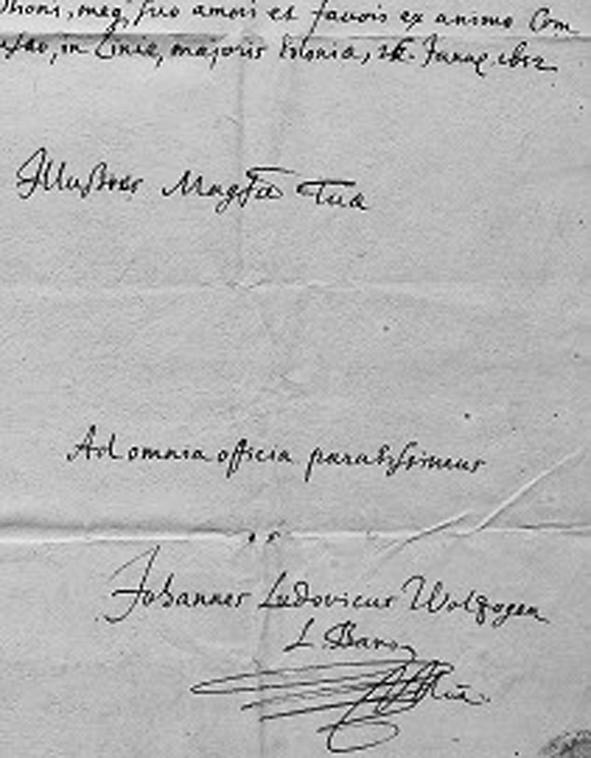 meq, suo amori et favoris ex animo Com
in Cinia, majoris Polonia, Junij
Illustrer Magtia Tua
Ad omnia officia paratissimus
Johannes Ludovicus Wolzogen
L. Baro